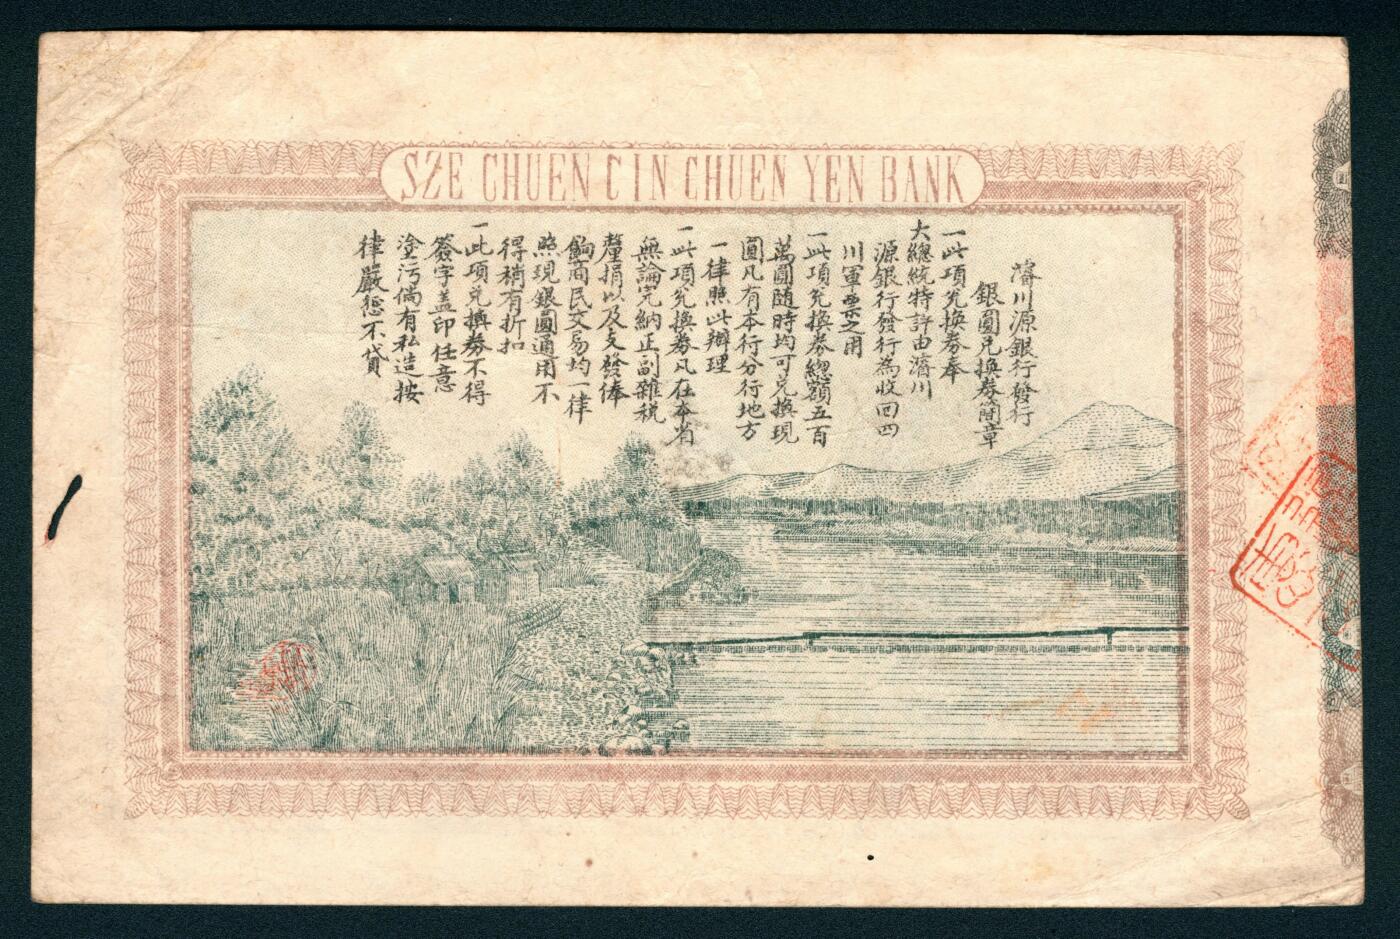 SZE CHUEN CIN CHUEN YEN BANK
濬川源銀行發行
銀圓兌換券簡章
一此項兌換券奉
大總統特許由濬川
源銀行發行為收回四
川軍票之用
一此項兌換券總額五百
萬圓隨時均可兌換現
圓凡有本行分行地方
一律照此辦理
一此項兌換券凡在本省
無論完納正副雜稅
釐捐以及支發俸
餉商民交易均一律
照現銀圓通用不
得稍有折扣
一此項兌換券不得
簽字盖印任意
塗污倘有私造按
律嚴懲不貸